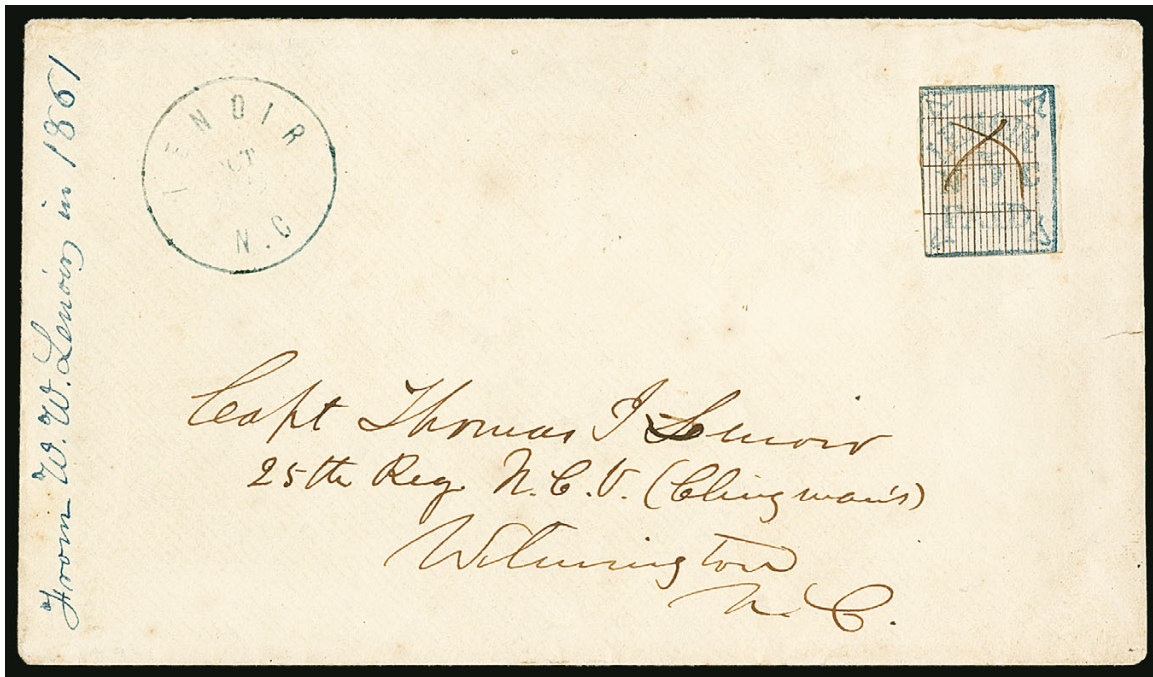 From W. W. Lenoir, in 1861
LENOIR
N.C
LENOIR
N C
PAID
Capt Thomas I Lenoir
25th Reg. N.C.V. (Clingman's)
Wilmington
N C.